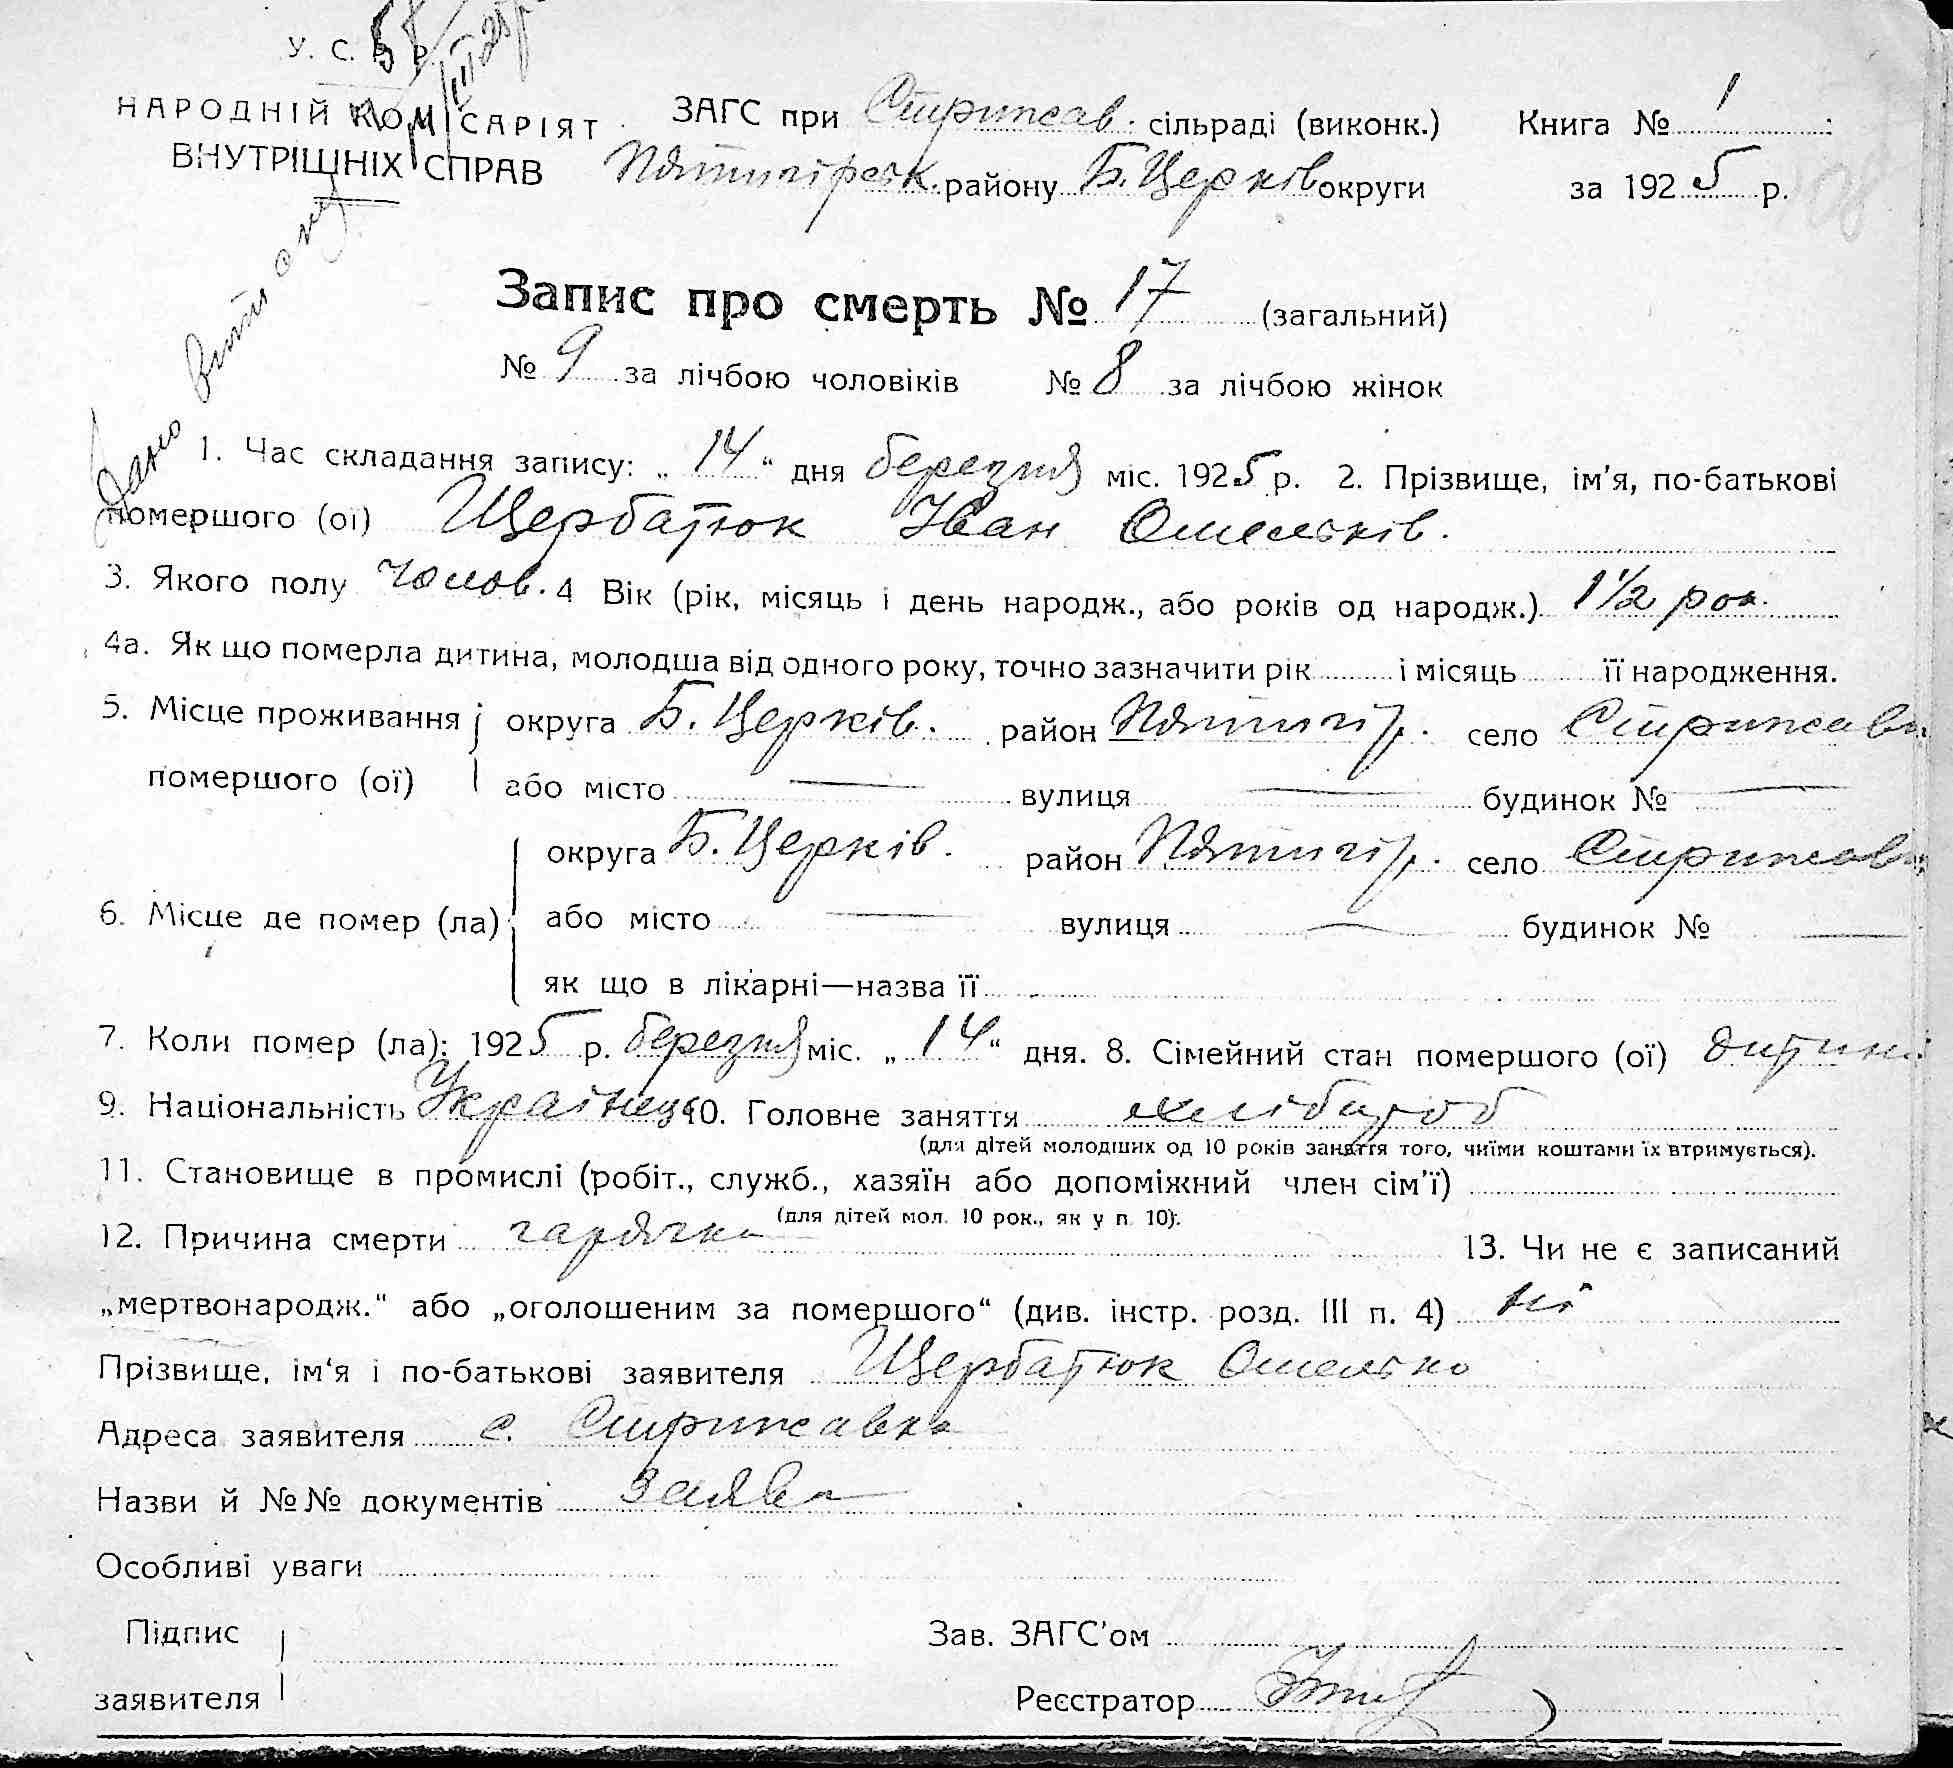 У. С. Р. Р.
НАРОДНІЙ КОМІСАРІЯТ
ВНУТРІШНІХ СПРАВ
ЗАГС при Стрижав. сільраді (виконк.)
Пятигірськ. району Б. Церків округи
Книга № 1
за 1925 р.
Дано витяг
Запис про смерть № 17 (загальний)
№ 9 за лічбою чоловіків № 8 за лічбою жінок
1. Час складання запису: „ 14 “ дня березня міс. 1925 р. 2. Прізвище, ім'я, по-батькові
помершого (ої) Щербатюк Іван Омельків.
3. Якого полу чолов. 4 Вік (рік, місяць і день народж., або років од народж.) 1½ рок.
4а. Як що померла дитина, молодша від одного року, точно зазначити рік і місяць її народження.
5. Місце проживання округа Б. Церків. район Пятигір. село Стрижавк
помершого (ої) або місто — вулиця — будинок № —
округа Б. Церків. район Пятигір. село Стрижавк
6. Місце де помер (ла) або місто — вулиця — будинок № —
як що в лікарні—назва її
7. Коли помер (ла): 1925 р. березня міс. „ 14 “ дня. 8. Сімейний стан помершого (ої) дитина
9. Національність Українець 10. Головне заняття хлібороб
(для дітей молодших од 10 років заняття того, чиїми коштами їх втримується).
11. Становище в промислі (робіт., служб., хазяїн або допоміжний член сім'ї)
(для дітей мол. 10 рок., як у п. 10).
12. Причина смерти гарячка 13. Чи не є записаний
„мертвонародж.“ або „оголошеним за помершого“ (див. інстр. розд. III п. 4) ні
Прізвище, ім'я і по-батькові заявителя Щербатюк Омелько
Адреса заявителя с. Стрижавка
Назви й №№ документів заява
Особливі уваги
Підпис
заявителя
Зав. ЗАГС'ом
Реєстратор